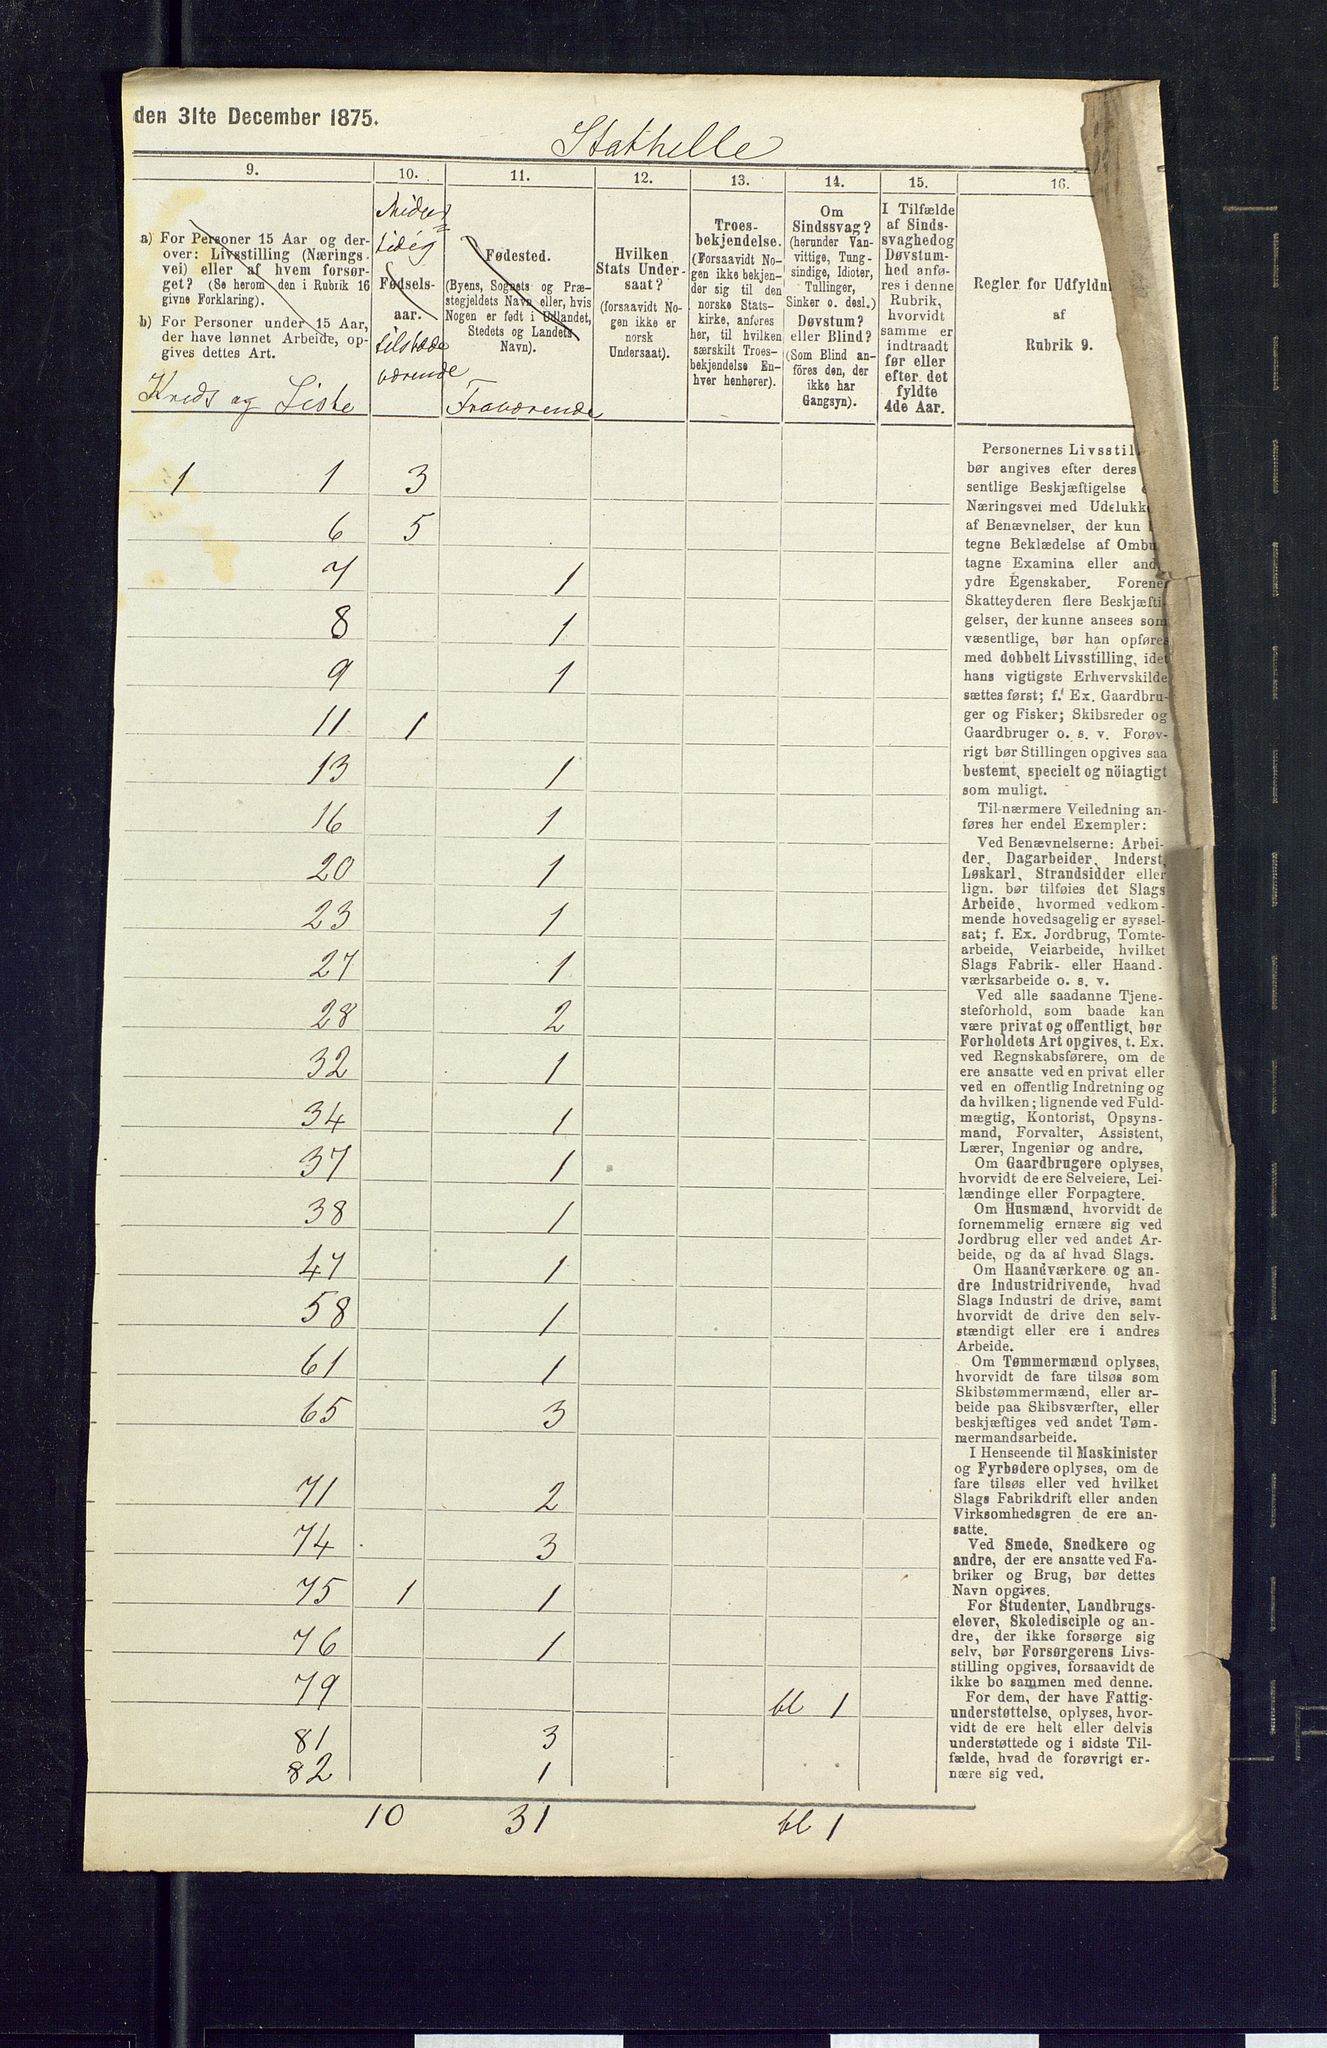 den 31te December 1875.
Stathelle
9.
10.
11.
12.
13.
14.
15.
16.
a) For Personer 15 Aar og der-
over: Livsstilling (Nærings-
vei) eller af hvem forsør-
get? (Se herom den i Rubrik 16
givne Forklaring).
b) For Personer under 15 Aar,
der have lønnet Arbeide, op-
gives dettes Art.
Kreds og Liste
Midler=
tidig
Fødsels-
aar.
tilstede
værende
Fødested.
(Byens, Sognets og Præ-
stegjeldets Navn eller, hvis
Nogen er født i Udlandet,
Stedets og Landets
Navn).
Fraværende
Hvilken
Stats Under-
saat?
(forsaavidt No-
gen ikke er
norsk
Undersaat).
Troes-
bekjendelse.
(Forsaavidt No-
gen ikke bekjen-
der sig til den
norske Stats-
kirke, anføres
her, til hvilken
særskilt Troes-
bekjendelse En-
hver henhører).
Om
Sindssvag?
(herunder Van-
vittige, Tung-
sindige, Idioter,
Tullinger,
Sinker o. desl.)
Døvstum?
eller Blind?
(Som Blind an-
føres den, der
ikke har
Gangsyn).
I Tilfælde
af Sinds-
svaghed og
Døvstum-
hed anfø-
res i denne
Rubrik,
hvorvidt
samme er
indtraadt
før eller
efter det
fyldte
4de Aar.
Regler for Udfyldn
af
Rubrik 9.
1 1 3
6 5
7 1
8 1
9 1
11 1
13 1
16 1
20 1
23 1
27 1
28 2
32 1
34 1
37 1
38 1
47 1
58 1
61 1
65 3
71 2
74 3
75 1 1
76 1
79 bl 1
81 3
82 1
10 31 bl 1
Personernes Livsstil
bør angives efter deres
sentlige Beskjæftigelse
Næringsvei med Udelukk
af Benævnelser, der kun
tegne Beklædelse af Ombu
tagne Examina eller and
ydre Egenskaber. Forene
Skatteyderen flere Beskjæfti-
gelser, der kunne ansees som
væsentlige, bør han opføres
med dobbelt Livsstilling, idet
hans vigtigste Erhvervskilde
sættes først; f. Ex. Gaardbru-
ger og Fisker; Skibsreder og
Gaardbruger o. s. v. Forøv-
rigt bør Stillingen opgives saa
bestemt, specielt og nöiagtigt
som muligt.
Til nærmere Veiledning an-
føres her endel Exempler:
Ved Benævnelserne: Arbei-
der, Dagarbeider, Inderst,
Løskarl, Strandsidder eller
lign. bør tilføies det Slags
Arbeide, hvormed vedkom-
mende hovedsagelig er syssel-
sat; f. Ex. Jordbrug, Tomte-
arbeide, Veiarbeide, hvilket
Slags Fabrik- eller Haand-
værksarbeide o. s. v.
Ved alle saadanne Tjene-
steforhold, som baade kan
være privat og offentligt, bør
Forholdets Art opgives, t. Ex.
ved Regnskabsførere, om de
ere ansatte ved en privat eller
ved en offentlig Indretning og
da hvilken; lignende ved Fuld-
mægtig, Kontorist, Opsyns-
mand, Forvalter, Assistent,
Lærer, Ingeniør og andre.
Om Gaardbrugere oplyses,
hvorvidt de ere Selveiere, Lei-
lændinge eller Forpagtere.
Om Husmænd, hvorvidt de
fornemmelig ernære sig ved
Jordbrug eller ved andet Ar-
beide, og da af hvad Slags.
Om Haandværkere og an-
dre Industridrivende, hvad
Slags Industri de drive, samt
hvorvidt de drive den selv-
stændigt eller ere i andres
Arbeide.
Om Tømmermænd oplyses,
hvorvidt de fare tilsøs som
Skibstømmermænd, eller ar-
beide paa Skibsværfter, eller
beskjæftiges ved andet Tøm-
mermandsarbeide.
I Henseende til Maskinister
og Fyrbødere oplyses, om de
fare tilsøs eller ved hvilket
Slags Fabrikdrift eller anden
Virksomhedsgren de ere an-
satte.
Ved Smede, Snedkere og
andre, der ere ansatte ved Fa-
briker og Brug, bør dettes
Navn opgives.
For Studenter, Landbrugs-
elever, Skoledisciple og an-
dre, der ikke forsørge sig
selv, bør Forsørgerens Livs-
stilling opgives, forsaavidt de
ikke bo sammen med denne.
For dem, der have Fattig-
understøttelse, oplyses, hvor-
vidt de ere helt eller delvis
understøttede og i sidste Til-
fælde, hvad de forøvrigt er-
nære sig ved.